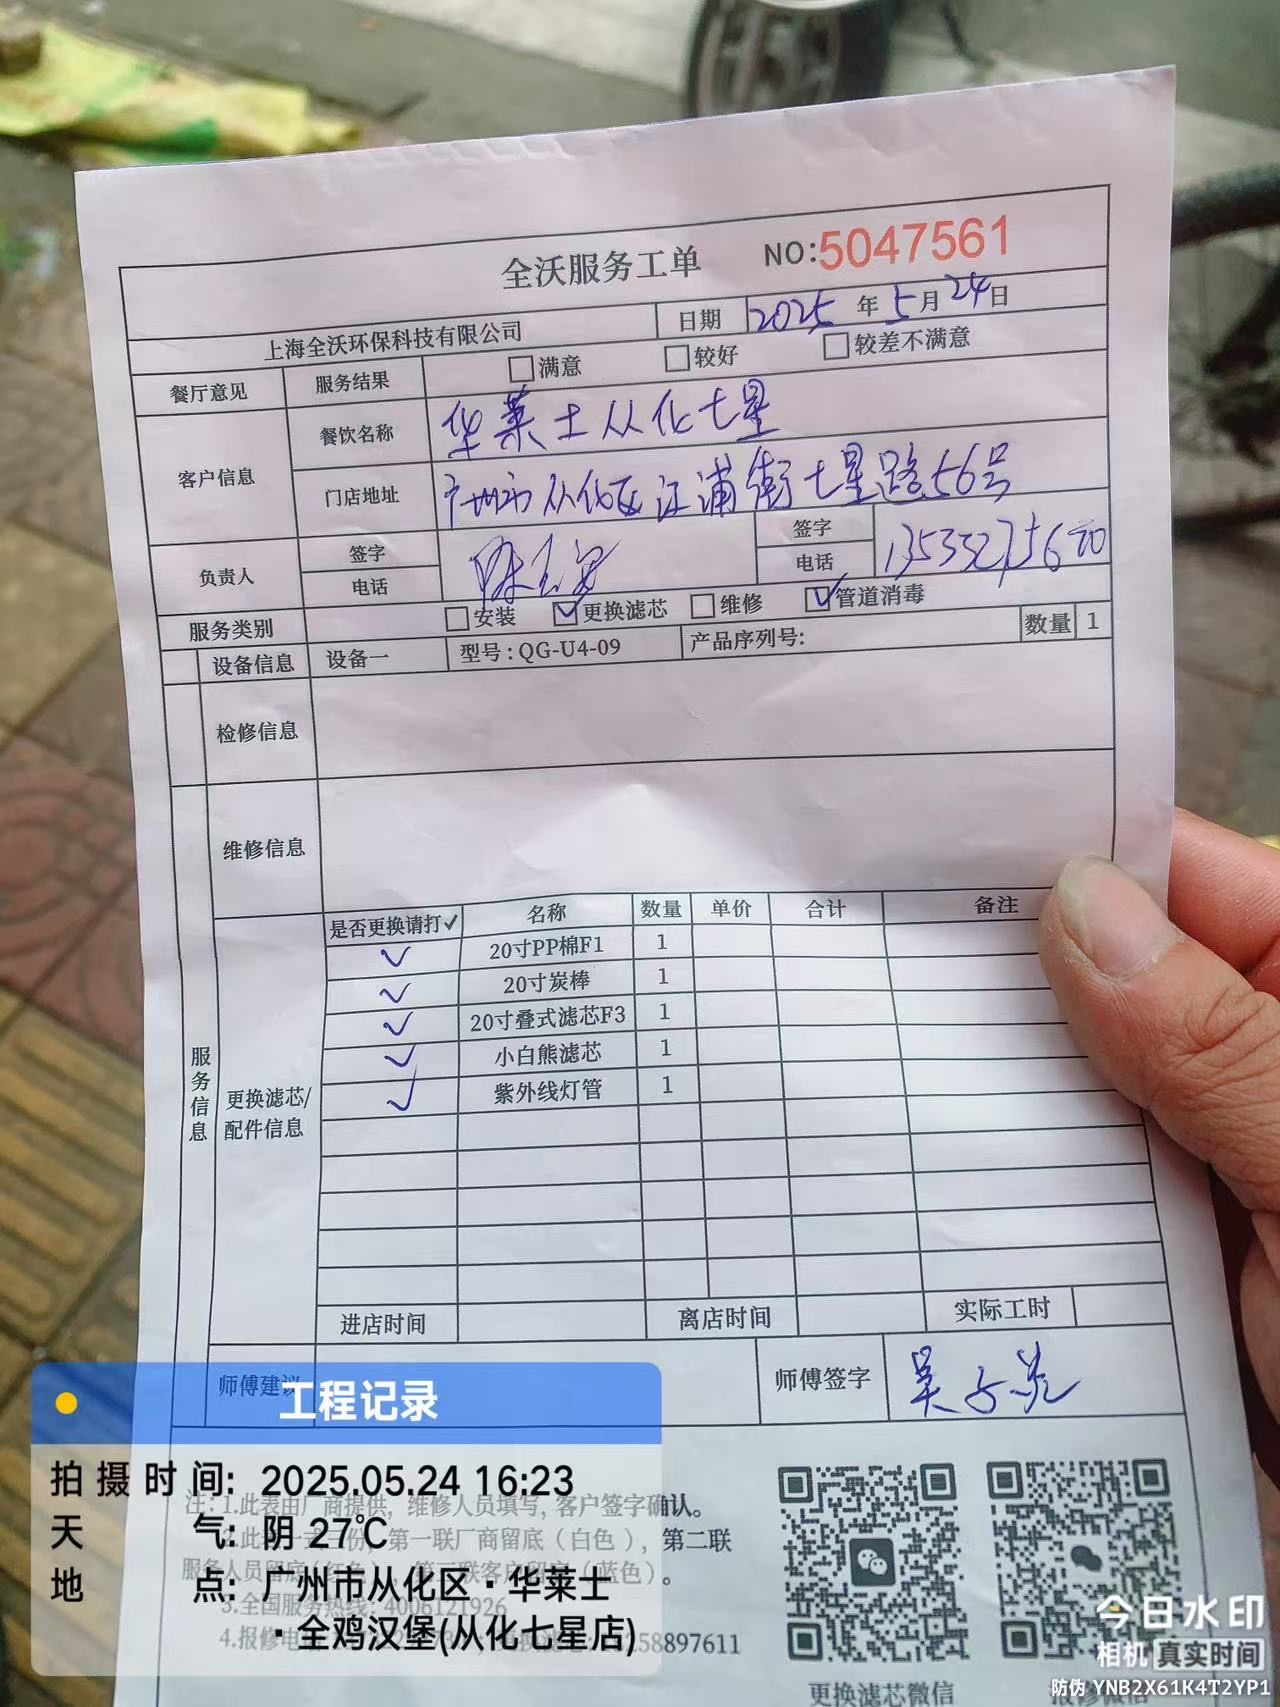 全沃服务工单 NO:5047561
上海全沃环保科技有限公司 日期 2025 年 5 月 24 日
餐厅意见 服务结果 满意 较好 较差不满意
客户信息
餐饮名称 华莱士从化七星
门店地址 广州市从化区江浦街七星路56号
负责人
签字
电话
签字
电话
服务类别 安装 更换滤芯 维修 管道消毒
设备信息 设备一 型号:QG-U4-09 产品序列号: 数量 1
检修信息
维修信息
服务信息
更换滤芯/
配件信息
是否更换请打✓ 名称 数量 单价 合计 备注
✓ 20寸PP棉F1 1
✓ 20寸炭棒 1
✓ 20寸叠式滤芯F3 1
✓ 小白熊滤芯 1
✓ 紫外线灯管 1
进店时间 离店时间 实际工时
师傅建议 师傅签字
工程记录
拍摄时间: 2025.05.24 16:23
天气: 阴 27℃
地点: 广州市从化区·华莱士
·全鸡汉堡(从化七星店)
注: 1.此表由厂商提供, 维修人员填写, 客户签字确认。
第一联厂商留底(白色), 第二联
(蓝色)。
3.全国服务热线: 4008121926
4.报修电
258897611
更换滤芯微信
今日水印
相机 真实时间
防伪 YNB2X61K4T2YP1